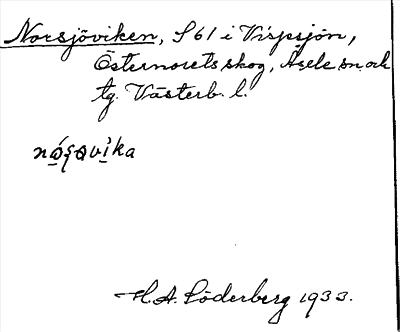 Norsjöviken, S 61 i Vispsjön,
Östernorets skog, Åsele sn. och
tg. Västerb. l.
H. A. Söderberg 1933.